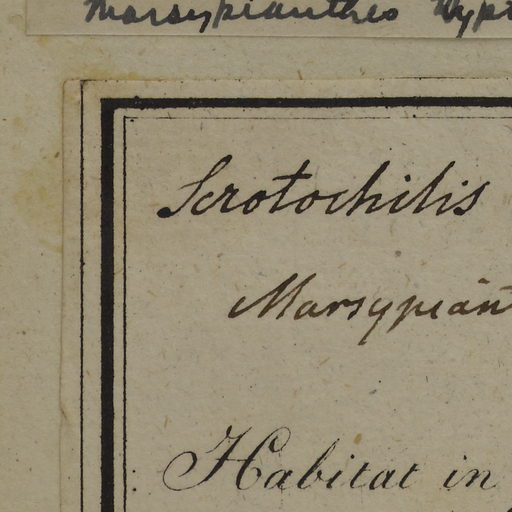 Marsypianthes Hypt
Scrotochilis
Marsypian
Habitat in